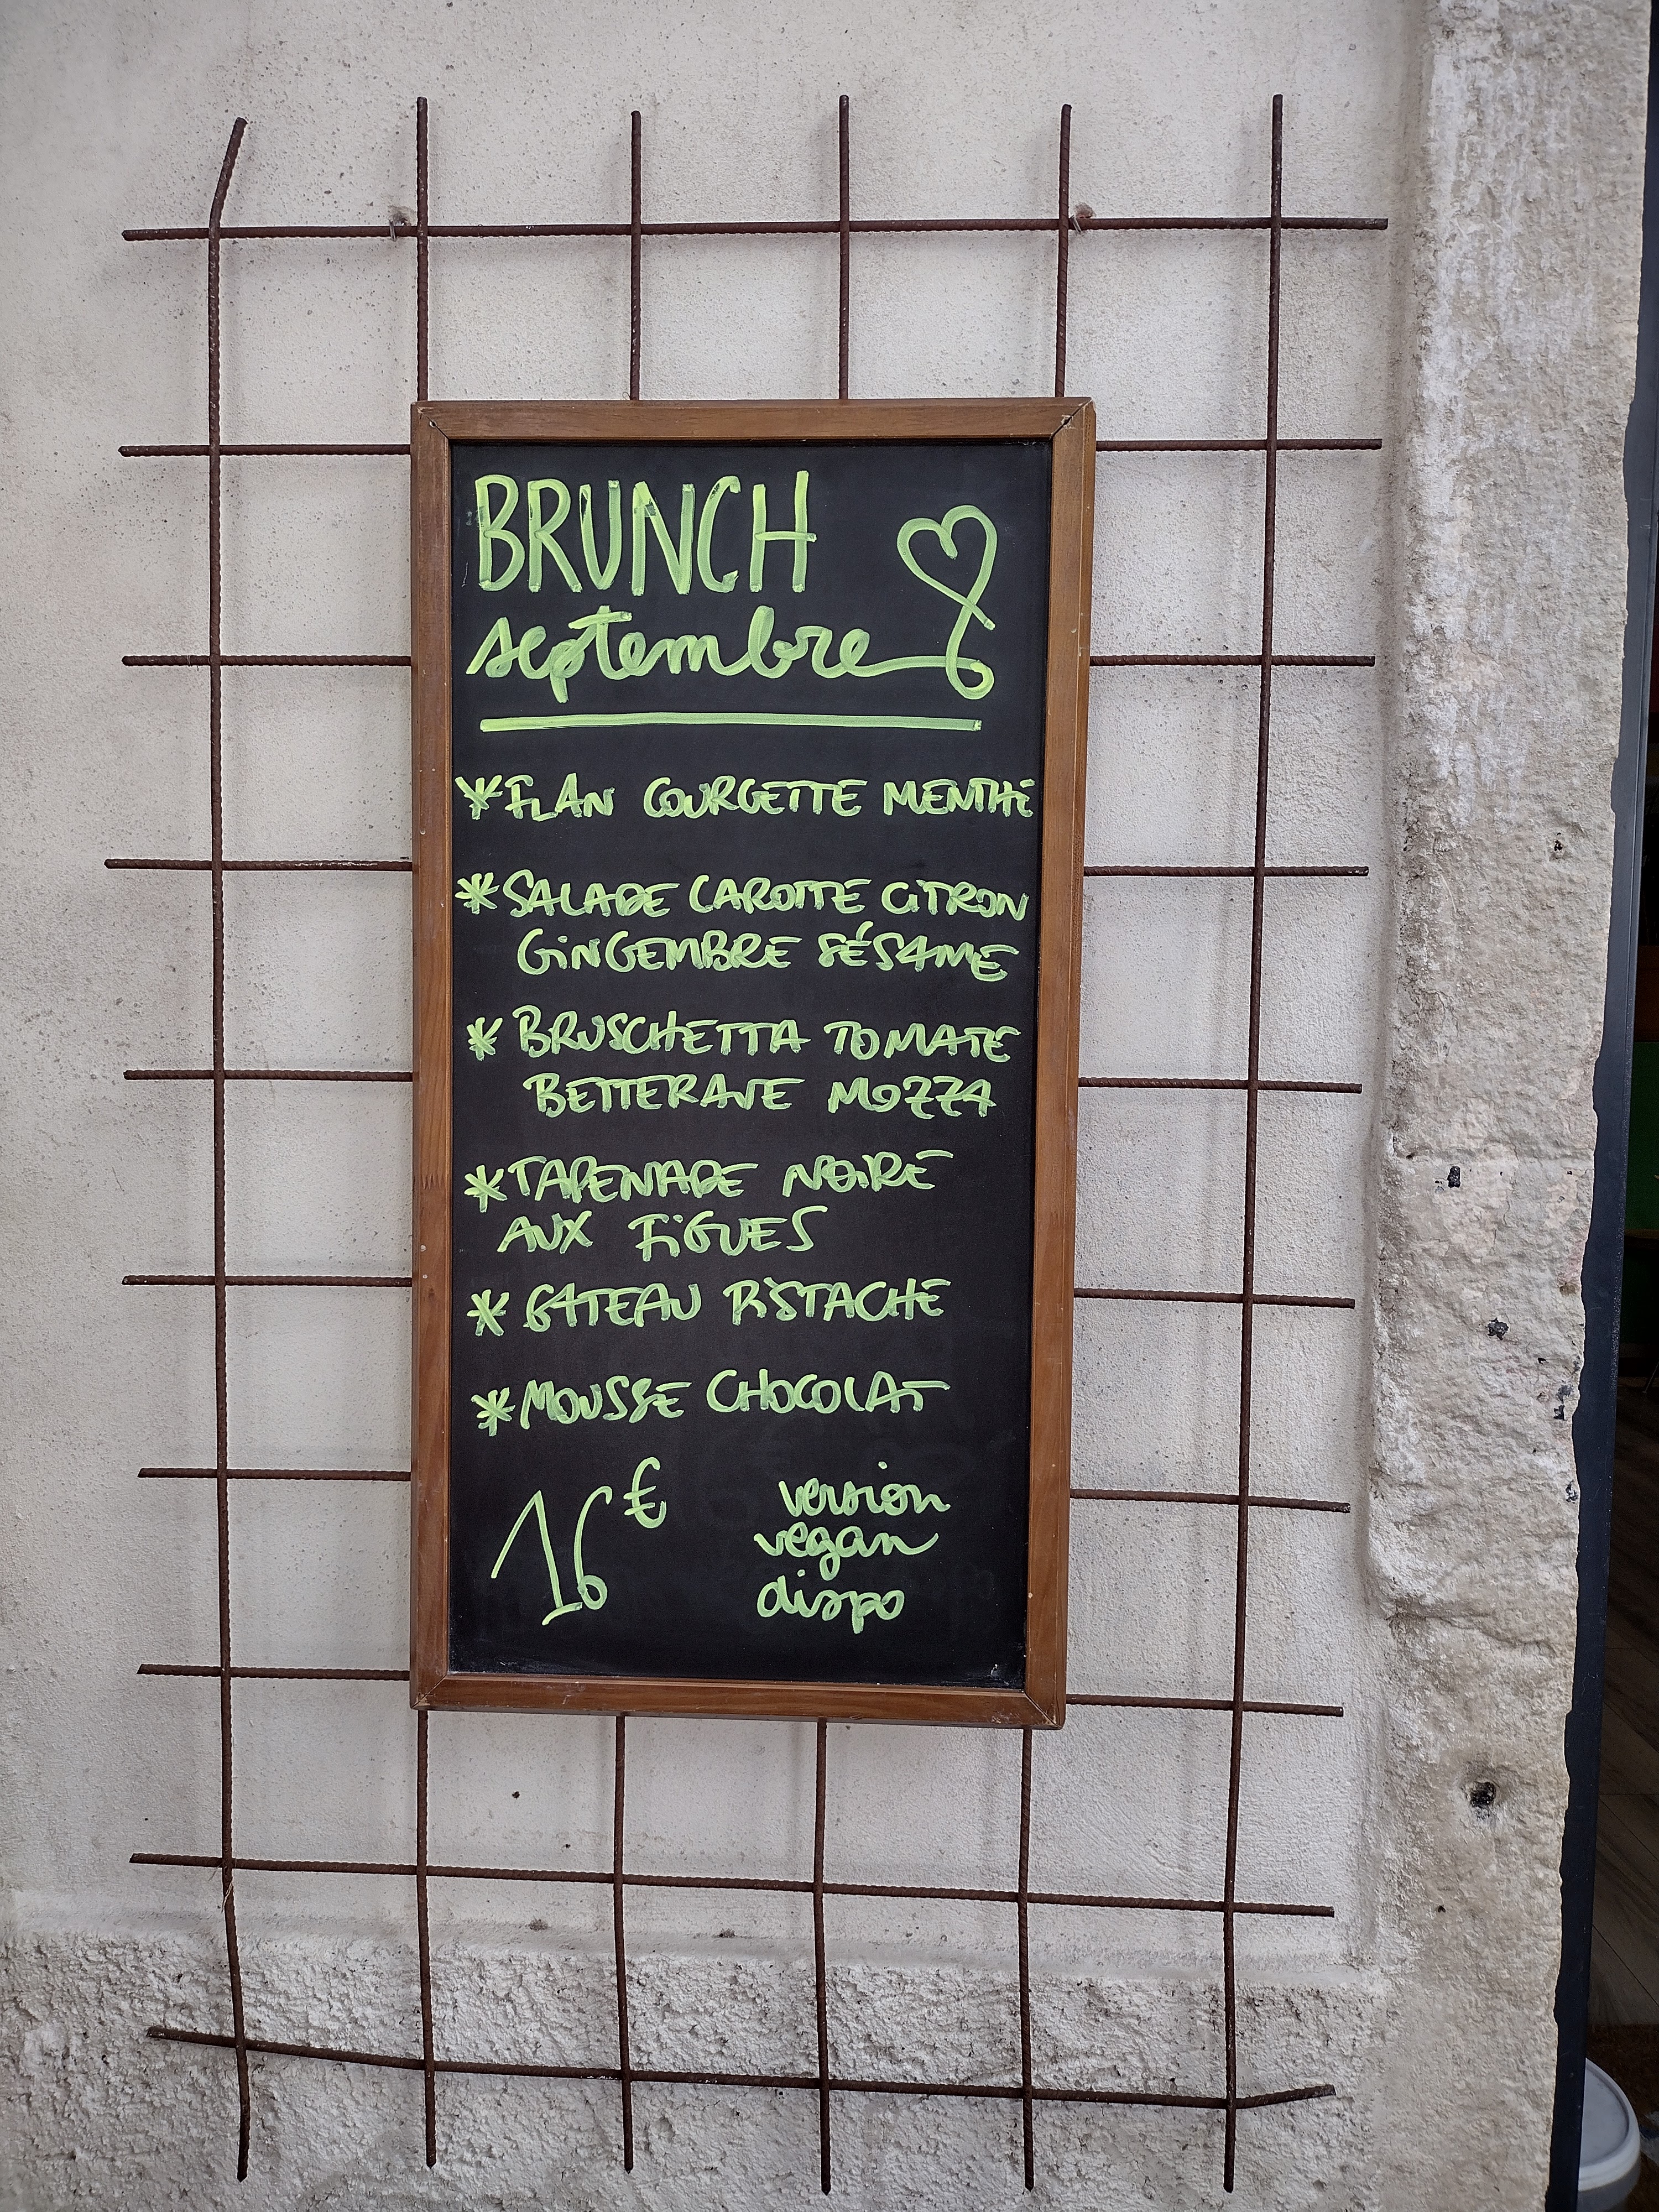 BRUNCH
septembre
* FLAN COURGETTE MENTHE
* SALADE CAROTTE CITRON
GINGEMBRE SÉSAME
* BRUSCHETTA TOMATE
BETTERAVE MOZZA
* TAPENADE NOIRE
AUX FIGUES
* GATEAU PISTACHE
* MOUSSE CHOCOLAT
16€
version
vegan
dispo